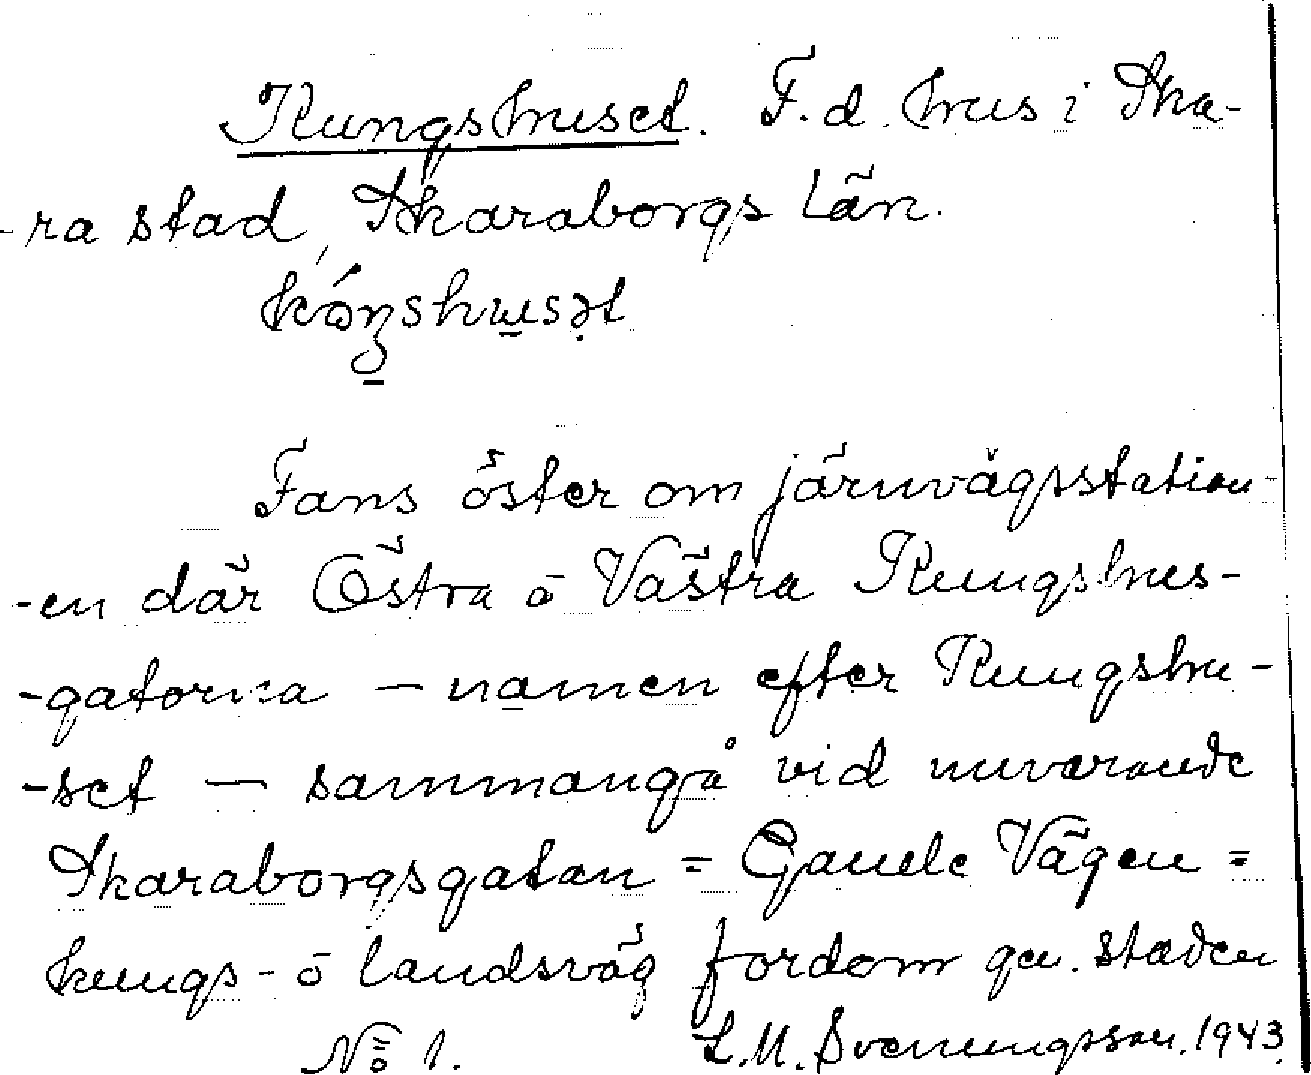 Kungshuset. F.d. hus i Ska-
-ra stad, Skaraborgs Län.
Fans öster om järnvägsstation-
-en där Östra o Västra Kungshus-
-gatorna — namen efter Kungshu-
-set — sammangå vid nuvarande
Skaraborgsgatan = Gamle Vägen =
kungs- o landsväg fordom gen. staden
No 1. L.M. Svenungsson. 1943